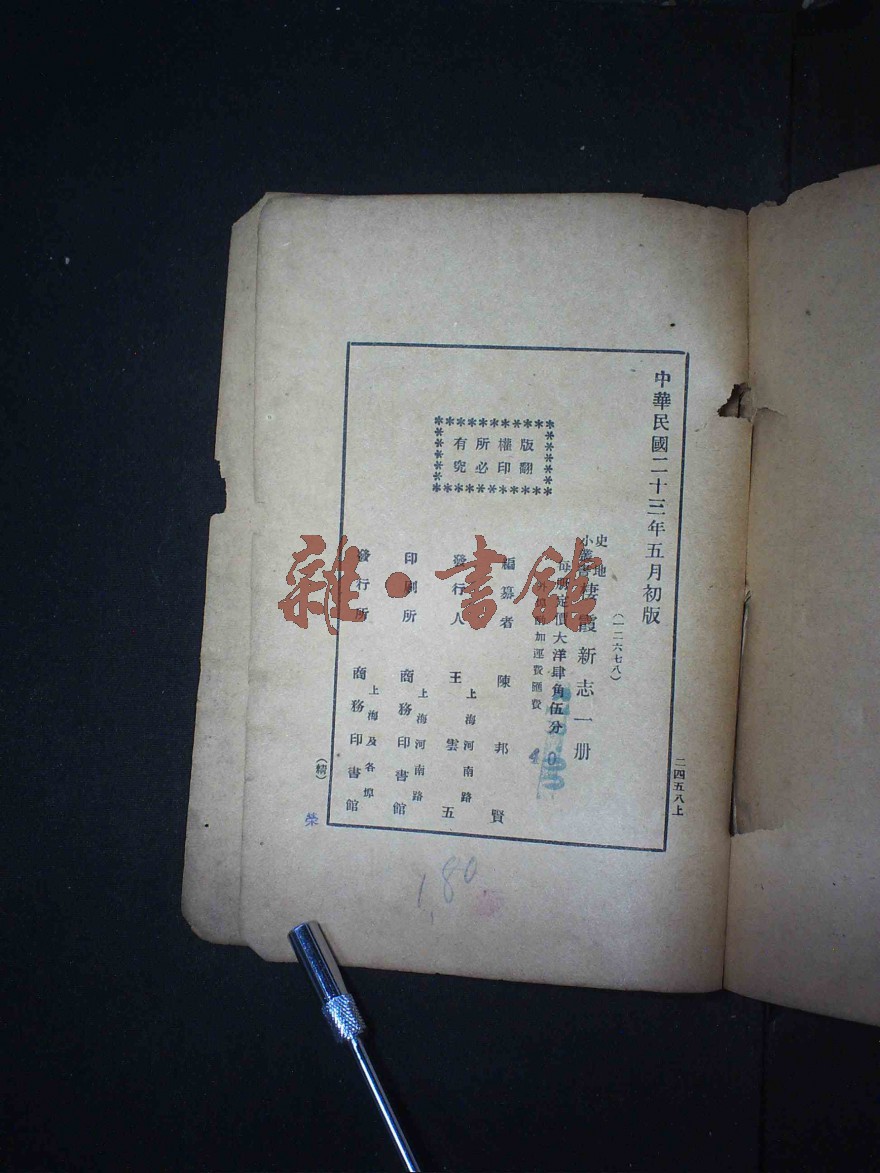 中華民國二十三年五月初版
(一二六七八)
史地
小叢書
棲霞新志一册
每册定價大洋肆角伍分
外埠酌加運費匯費
編纂者 陳邦賢
發行人 王雲五
上海河南路
印刷所 商務印書館
上海河南路
發行所 商務印書館
上海及各埠
版權所有
翻印必究
二四五八上
(精)
榮
1,80
雜·書館